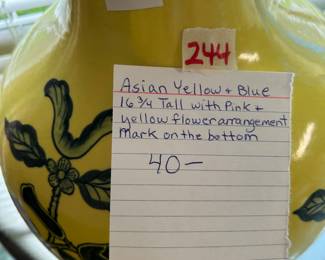 244
Asian Yellow + Blue
16 3/4 Tall with Pink +
yellow flower arrangement
Mark on the bottom
40 —